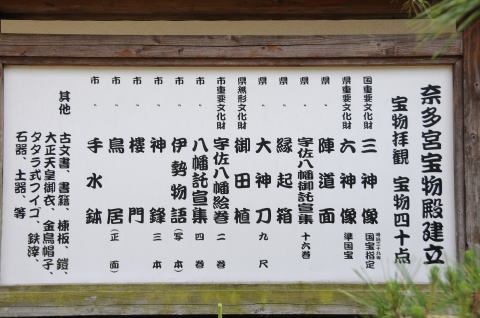 奈多宮宝物殿建立
宝物拝観 宝物四十点
国重要文化財 三神像 国宝指定
県重要文化財 六神像 準国宝
県 〃 陣道面
県重要文化財 宇佐八幡御託宣集 十六巻
県 〃 縁起箱
県 〃 大神刀 九尺
県無形文化財 御田植
市重要文化財 宇佐八幡絵巻 二巻
市 〃 八幡託宣集 四巻
市 〃 伊勢物語(写本)
市 〃 神鋒 三本
市 〃 楼門
市 〃 鳥居(正面)
市 〃 手水鉢
其他 古文書、書籍、棟板、鎧、
大正天皇御衣、金烏帽子、
タタラ式フイゴ、鉄滓、
石器、土器、等